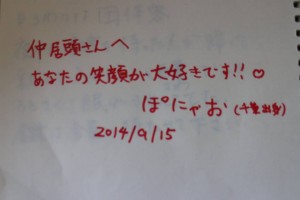 仲居頭さんへ
あなたの笑顔が大好きです!!♡
ぽにゃお(千葉出身)
2014/9/15